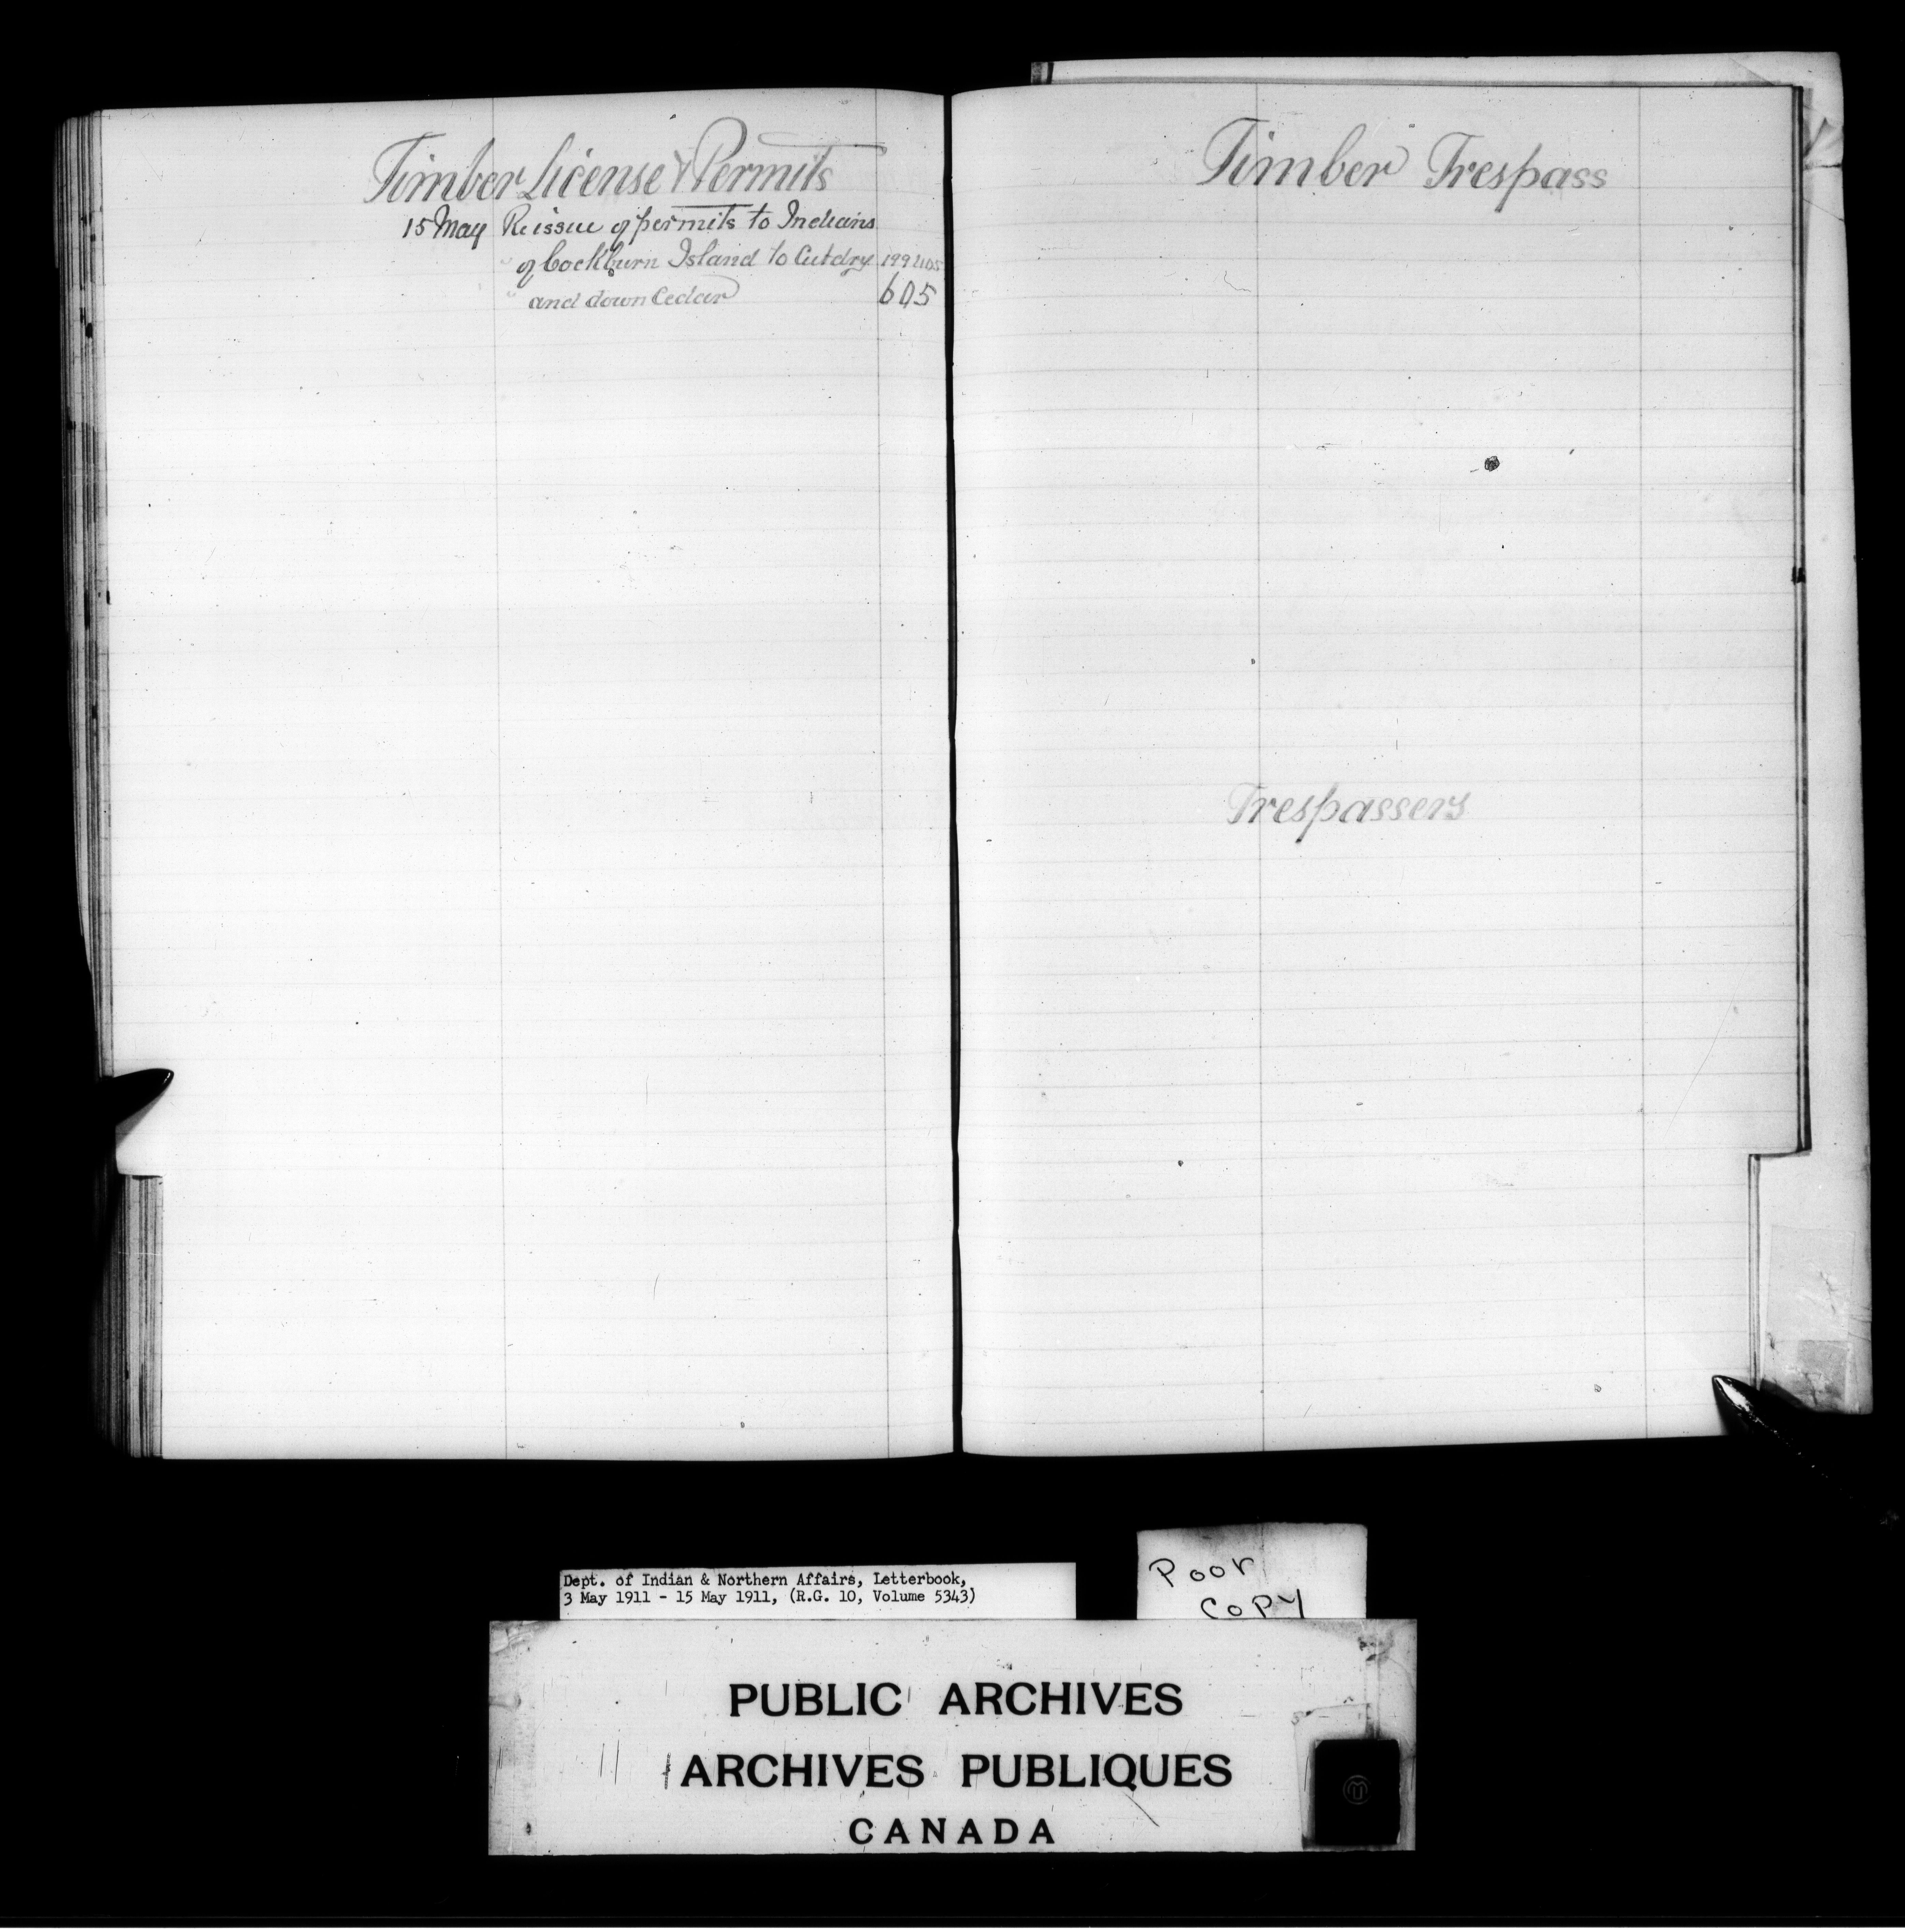 Timber License & Permits
15 May Reissue of permits to Indians
" of Cockburn Island to Cut dry
" and down Cedar 605
Timber Trespass
Trespassers
Dept. of Indian & Northern Affairs, Letterbook,
3 May 1911 - 15 May 1911, (R.G. 10, Volume 5343)
Poor
Copy
PUBLIC ARCHIVES
ARCHIVES PUBLIQUES
CANADA